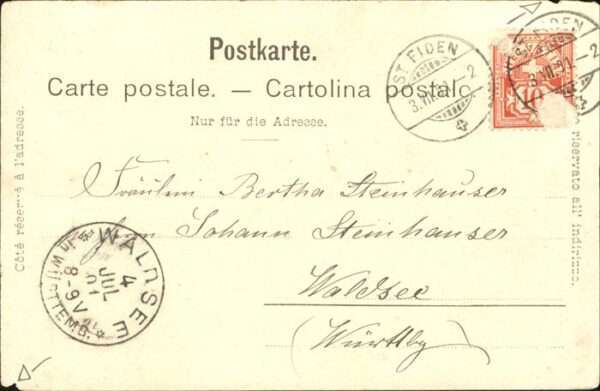 Postkarte.
Carte postale. — Cartolina postale
Nur für die Adresse.
Côté réservé à l'adresse.
riservato all' indirizzo.
ST. FIDEN
3.VII. -2
FIDEN
3.VII.01 -2
10
Fräulein Bertha Steinhauser
Johann Steinhauser
Waldsee
(Württbg)
WALDSEE
4
JUL
01
8-9 V
WÜRTTEMB.